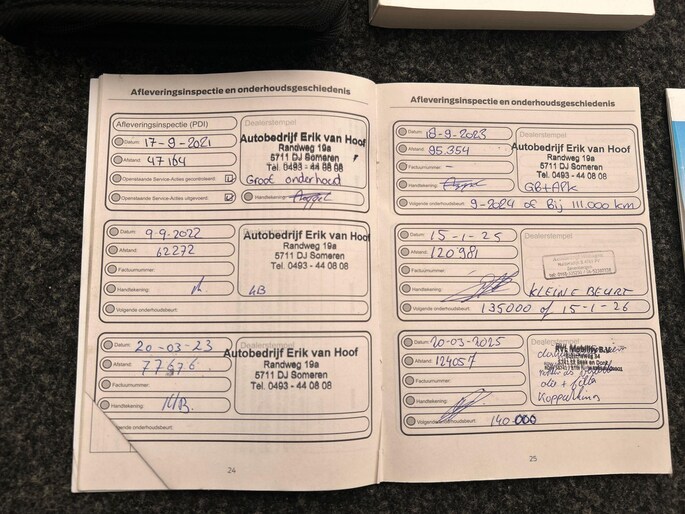 Afleveringsinspectie en onderhoudsgeschiedenis
Afleveringsinspectie (PDI)
Dealerstempel
Datum: 17-9-2021
Afstand: 47164
Openstaande Service-Acties gecontroleerd:
Openstaande Service-Acties uitgevoerd:
Autobedrijf Erik van Hoof
Randweg 19a
5711 DJ Someren
Tel. 0493 - 44 08 08
Groot onderhoud
Handtekening:
Datum: 9-9-2022
Afstand: 62272
Factuurnummer:
Handtekening:
Volgende onderhoudsbeurt:
Autobedrijf Erik van Hoof
Randweg 19a
5711 DJ Someren
Tel. 0493 - 44 08 08
Datum: 20-03-23
Afstand: 77676
Factuurnummer:
Handtekening:
Dealerstempel
Autobedrijf Erik van Hoof
Randweg 19a
5711 DJ Someren
Tel. 0493 - 44 08 08
24
Afleveringsinspectie en onderhoudsgeschiedenis
Datum: 18-9-2023
Afstand: 95.354
Factuurnummer: -
Handtekening:
Dealerstempel
Autobedrijf Erik van Hoof
Randweg 19a
5711 DJ Someren
Tel. 0493 - 44 08 08
GB+APK
Volgende onderhoudsbeurt: 9-2024 of Bij 111.000 km
Datum: 15-1-25
Afstand: 120981
Factuurnummer:
Handtekening:
Dealerstempel
KLEINE BEURT
Volgende onderhoudsbeurt: 135000 of 15-1-26
Datum: 20-03-2025
Afstand: 124057
Factuurnummer:
Handtekening:
olie + filter
Koppeling
Volgende onderhoudsbeurt: 140.000
25